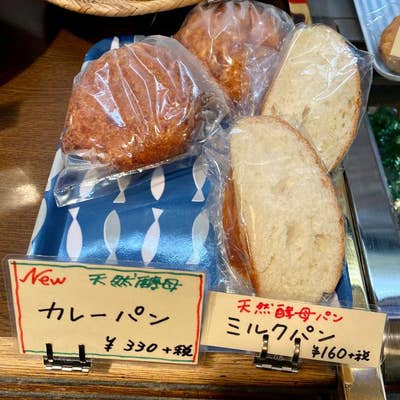 New 天然酵母
カレーパン
¥330+税
天然酵母パン
ミルクパン
¥160+税